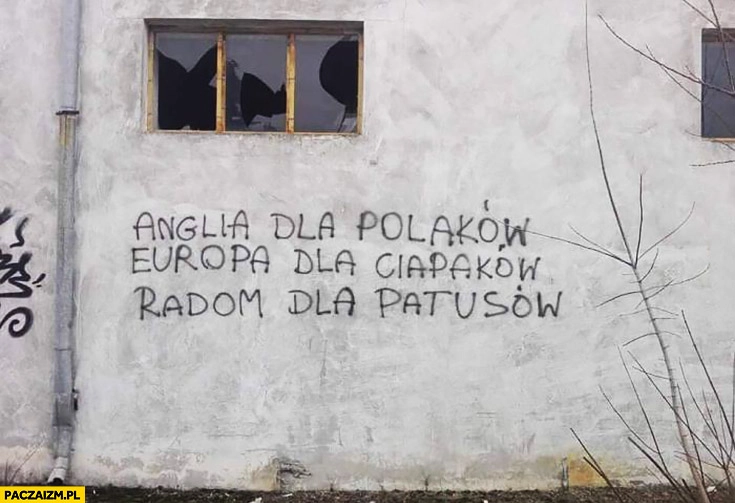 ANGLIA DLA POLAKÓW
EUROPA DLA CIAPAKÓW
RADOM DLA PATUSÓW
PACZAIZM.PL